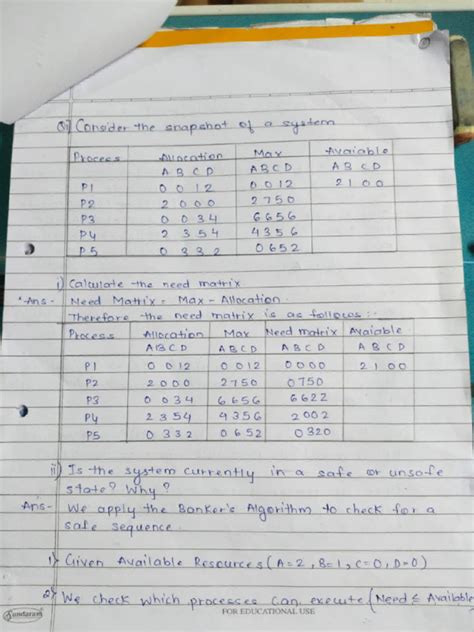 Q1) Consider the snapshot of a system
Process Allocation Max Avaiable
A B C D A B C D A B C D
P1 0 0 1 2 0 0 1 2 2 1 0 0
P2 2 0 0 0 2 7 5 0
P3 0 0 3 4 6 6 5 6
P4 2 3 5 4 4 3 5 6
P5 0 3 3 2 0 6 5 2
i) Calculate the need matrix
Ans - Need Matrix = Max - Allocation.
Therefore the need matrix is as follows :-
Process Allocation Max Need matrix Avaiable
A B C D A B C D A B C D A B C D
P1 0 0 1 2 0 0 1 2 0 0 0 0 2 1 0 0
P2 2 0 0 0 2 7 5 0 0 7 5 0
P3 0 0 3 4 6 6 5 6 6 6 2 2
P4 2 3 5 4 4 3 5 6 2 0 0 2
P5 0 3 3 2 0 6 5 2 0 3 2 0
ii) Is the system currently in a safe or unsafe
state? Why?
Ans - We apply the Banker's Algorithm to check for a
safe sequence.
1) Given Available Resources (A=2, B=1, C=0, D=0)
2) We check which processes can execute (Need ≤ Available
Sundaram FOR EDUCATIONAL USE